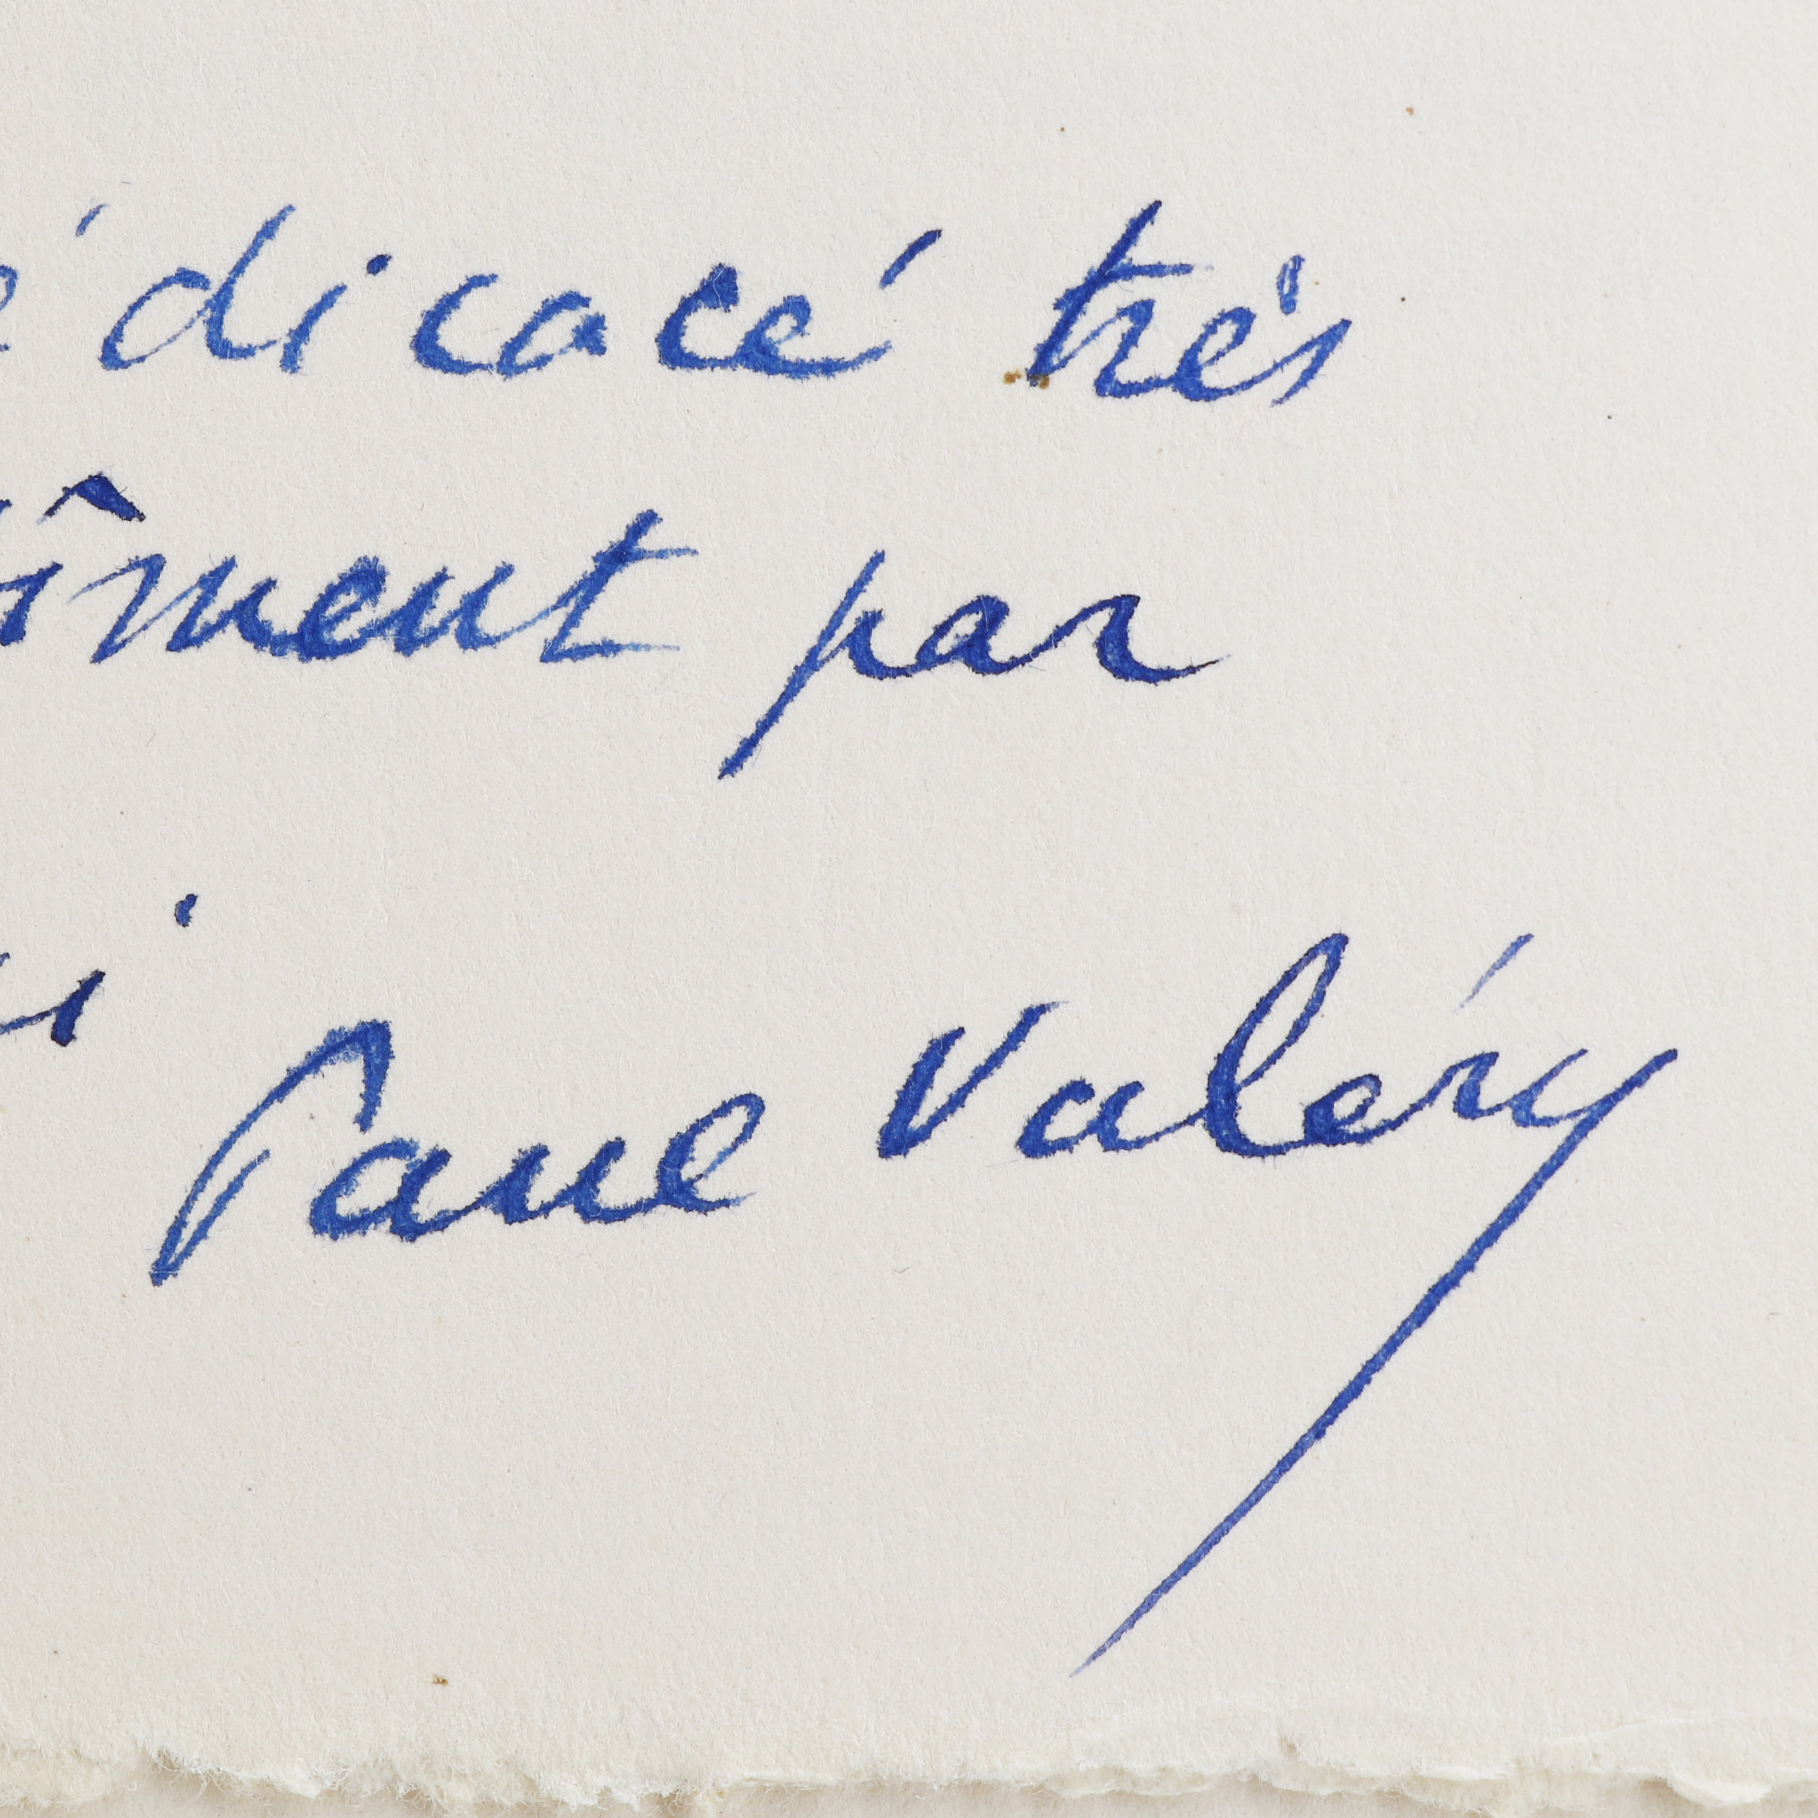 édicacé très
îment par
i
Paul Valéry